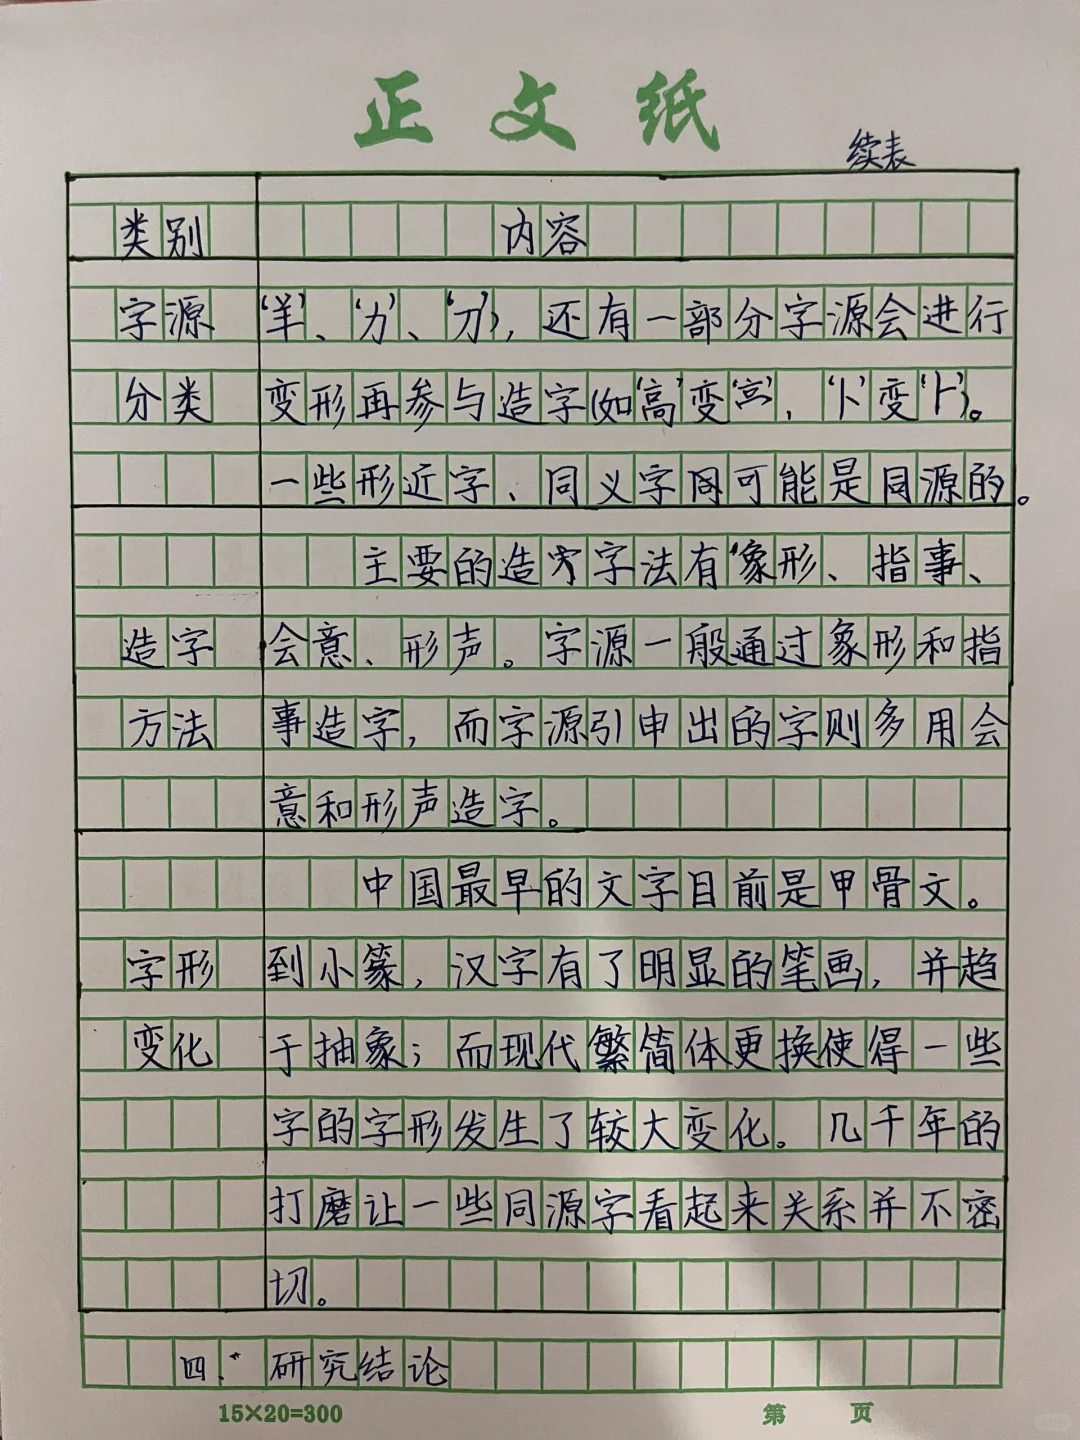 正文纸
续表
类别 内容
字源 '羊'、'力'、'刀'),还有一部分字源会进行
分类 变形再参与造字(如'高'变'𠅃','卜'变'⺊')。
一些形近字、同义字间可能是同源的。
主要的造字法有象形、指事、
造字 会意、形声。字源一般通过象形和指
方法 事造字,而字源引申出的字则多用会
意和形声造字。
中国最早的文字目前是甲骨文。
字形 到小篆,汉字有了明显的笔画,并趋
变化 于抽象;而现代繁简体更换使得一些
字的字形发生了较大变化。几千年的
打磨让一些同源字看起来关系并不密
切。
四. 研究结论
15×20=300 第 页